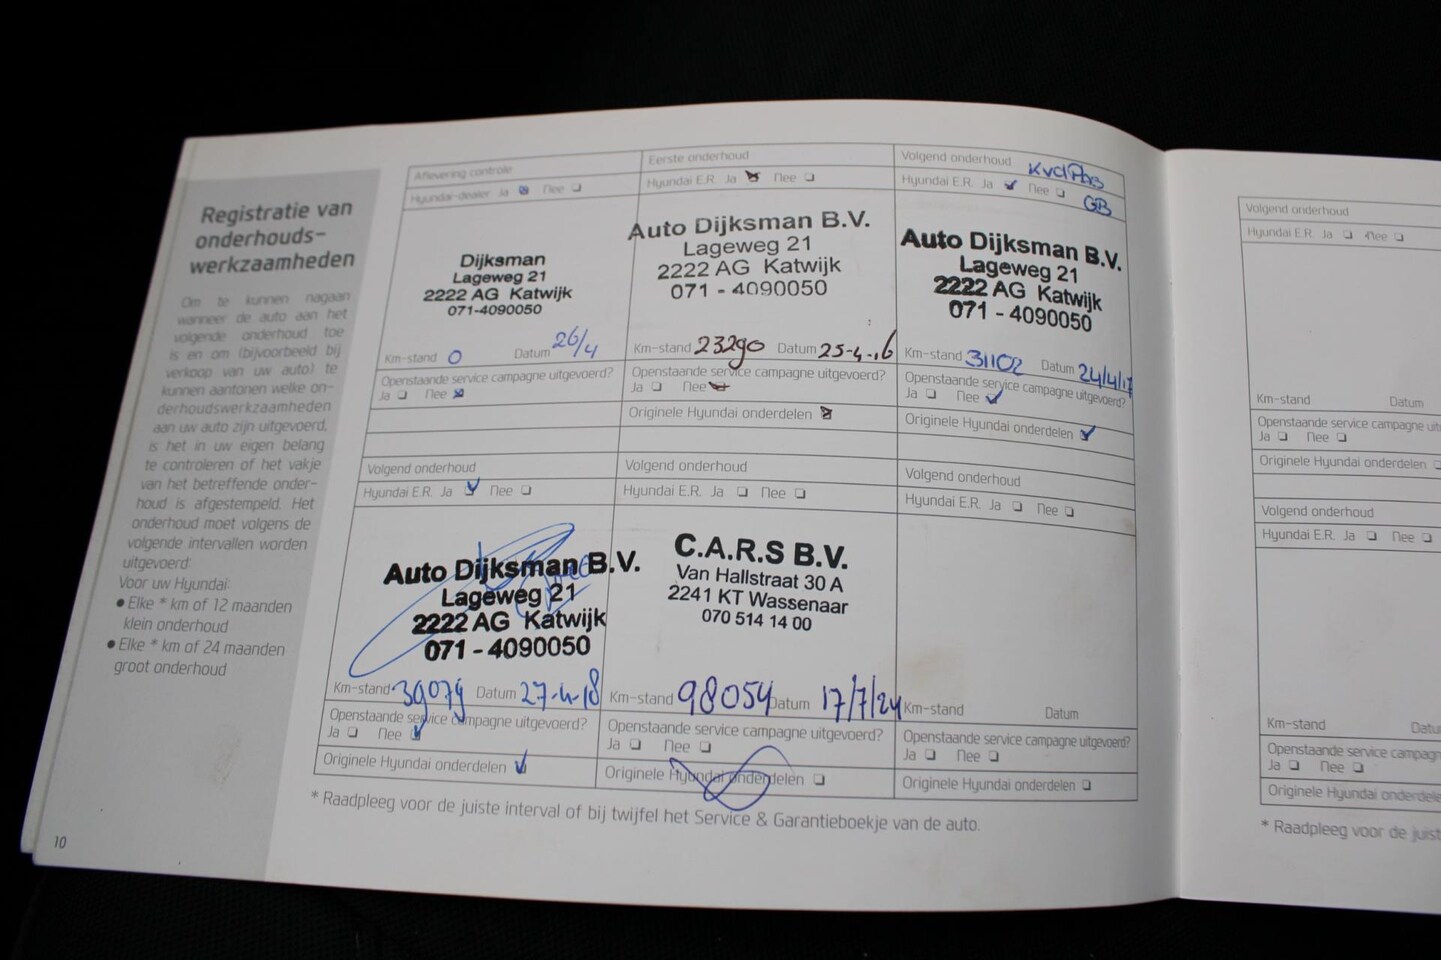 Registratie van
onderhouds-
werkzaamheden
Om te kunnen nagaan
wanneer de auto aan het
volgende onderhoud toe
is en om (bijvoorbeeld bij
verkoop van uw auto) te
kunnen aantonen welke on-
derhoudswerkzaamheden
aan uw auto zijn uitgevoerd,
is het in uw eigen belang
te controleren of het vakje
van het betreffende onder-
houd is afgestempeld. Het
onderhoud moet volgens de
volgende intervallen worden
uitgevoerd:
Voor uw Hyundai:
● Elke * km of 12 maanden
klein onderhoud
● Elke * km of 24 maanden
groot onderhoud
10
Aflevering controle
Hyundai-dealer Ja Nee
Dijksman
Lageweg 21
2222 AG Katwijk
071-4090050
Km-stand 0 Datum 26/4
Openstaande service campagne uitgevoerd?
Ja Nee
Eerste onderhoud
Hyundai E.R. Ja Nee
Auto Dijksman B.V.
Lageweg 21
2222 AG Katwijk
071 - 4090050
Km-stand 23290 Datum 25-4-16
Openstaande service campagne uitgevoerd?
Ja Nee
Originele Hyundai onderdelen
Volgend onderhoud
Hyundai E.R. Ja Nee
GB
Auto Dijksman B.V.
Lageweg 21
2222 AG Katwijk
071 - 4090050
Km-stand 31102 Datum 24/4/17
Openstaande service campagne uitgevoerd?
Ja Nee
Originele Hyundai onderdelen
Volgend onderhoud
Hyundai E.R. Ja Nee
Auto Dijksman B.V.
Lageweg 21
2222 AG Katwijk
071 - 4090050
Km-stand 39079 Datum 27-4-18
Openstaande service campagne uitgevoerd?
Ja Nee
Originele Hyundai onderdelen
Volgend onderhoud
Hyundai E.R. Ja Nee
C.A.R.S B.V.
Van Hallstraat 30 A
2241 KT Wassenaar
070 514 14 00
Km-stand 98054 Datum 17/7/24
Openstaande service campagne uitgevoerd?
Ja Nee
Originele Hyundai onderdelen
Volgend onderhoud
Hyundai E.R. Ja Nee
Km-stand Datum
Openstaande service campagne uitgevoerd?
Ja Nee
Originele Hyundai onderdelen
* Raadpleeg voor de juiste interval of bij twijfel het Service & Garantieboekje van de auto.
Volgend onderhoud
Hyundai E.R. Ja Nee
Km-stand Datum
Openstaande service campagne uit
Ja Nee
Originele Hyundai onderdelen
Volgend onderhoud
Hyundai E.R. Ja Nee
Km-stand Datu
Openstaande service campagn
Ja Nee
Originele Hyundai onderdele
* Raadpleeg voor de juist